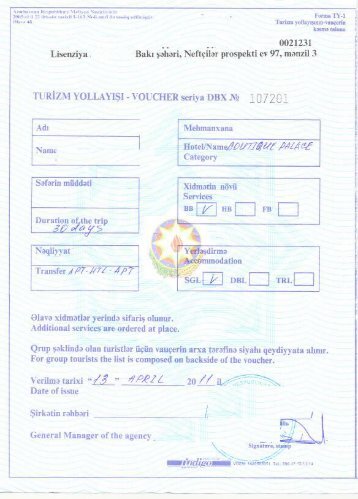 Forma TY-1
Turizm yollayışı-vauçerin
0021231
Lisenziya
Bakı şəhəri, Neftçilər prospekti ev 97, mənzil 3
TURİZM YOLLAYIŞI - VOUCHER seriya DBX № 107201
Adı
Name
Mehmanxana
Hotel/Name BOUTIQUE PALACE
Category
Səfərin müddəti
Duration of the trip
30 days
Xidmətin növü
Services
BB V HB FB
Nəqliyyat
Transfer APT-HTL-APT
Yerləşdirmə
Accommodation
SGL V DBL TRL
Əlavə xidmətlər yerində sifariş olunur.
Additional services are ordered at place.
Qrup şəklində olan turistlər üçün vauçerin arxa tərəfinə siyahı qeydiyyata alınır.
For group tourists the list is composed on backside of the voucher.
Verilmə tarixi "13" APRIL 2011 il
Date of issue
Şirkətin rəhbəri
General Manager of the agency
Signature, stamp
indigo